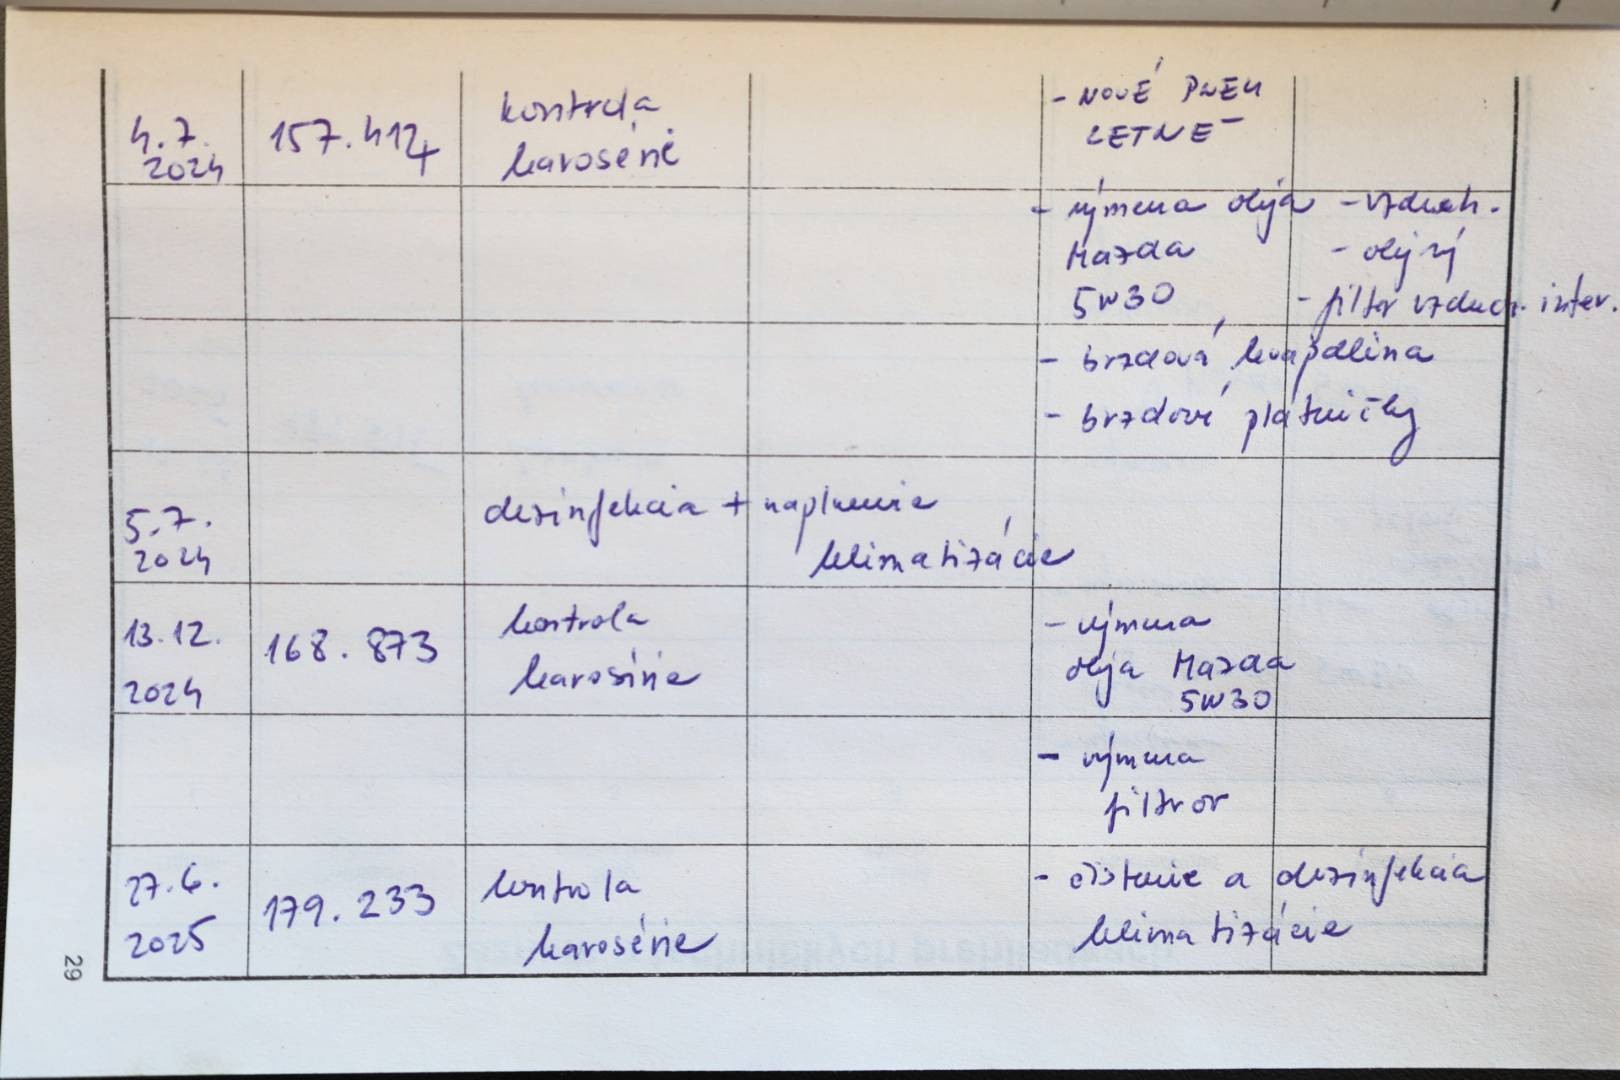 4.7.
2024
157.414
kontrola
karosérie
- NOVÉ PNEU
LETNÉ
- výmena oleja - vzduch.
Mazda - olejový
5W30 - filter vzduch. inter.
- brzdová kvapalina
- brzdové plátničky
5.7.
2024
dezinfekcia + naplnenie
klimatizácie
13.12.
2024
168.873
kontrola
karosérie
- výmena
oleja Mazda
5W30
- výmena
filtrov
27.6.
2025
179.233
kontrola
karosérie
- čistenie a dezinfekcia
klimatizácie
29